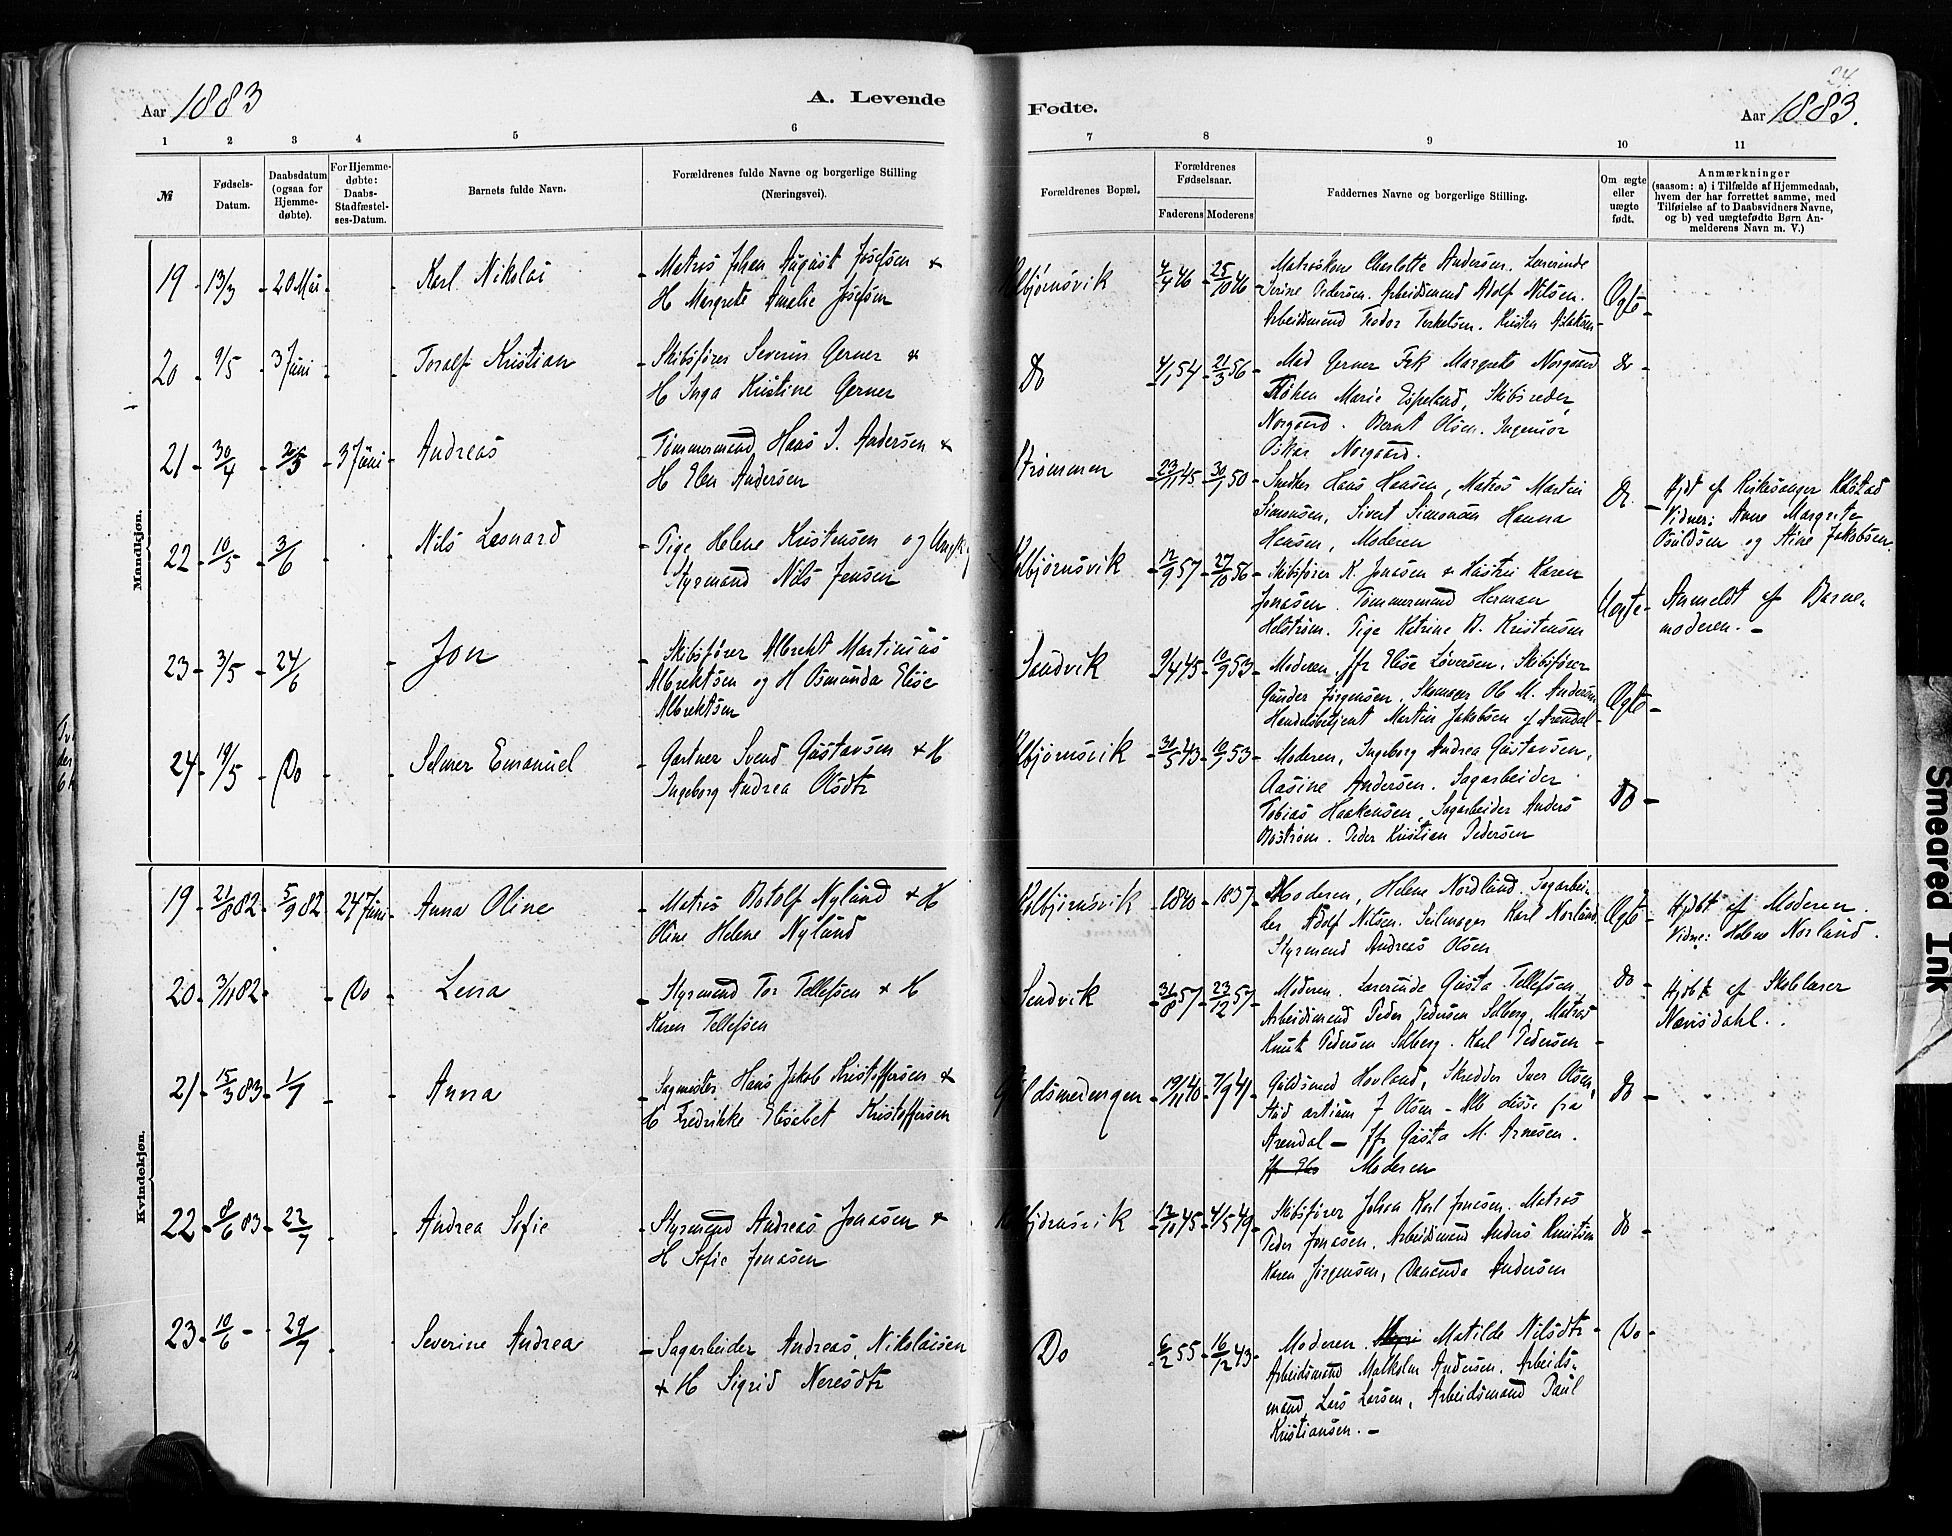 24
Aar 1883
A. Levende
Fødte.
Aar 1883.
1 2 3 4 5 6 7 8 9 10 11
№
Fødsels-
Datum.
Daabsdatum
(ogsaa for
Hjemme-
døbte).
For Hjemme-
døbte:
Daabs-
Stadfæstel-
ses-Datum.
Barnets fulde Navn.
Forældrenes fulde Navne og borgerlige Stilling
(Næringsvei).
Forældrenes Bopæl.
Forældrenes
Fødselsaar.
Faderens Moderens
Faddernes Navne og borgerlige Stilling.
Om ægte
eller
uægte
født.
Anmærkninger
(saasom: a) i Tilfælde af Hjemmedaab,
hvem der har forrettet samme, med
Tilføielse af to Daabsvidners Navne,
og b) ved uægtefødte Børn An-
melderens Navn m. V.)
Mandkjøn.
19 13/3 20 Mai
Karl Nikolai
Matros Johan August Josefsen +
H Margrete Amalie Josefsen
Kolbjørnsvik
4/4 46 25/10 46
Matroskone Charlotte Andersen. Lærerinde
Serine Pedersen. Arbeidsmand Adolf Nilsen.
Arbeidsmand Teodor Terkelsen. Kristen Aslaksen
Ægte
20 9/5 3 Juni
Toralf Kristian
Skibsfører Severin Gerner +
H Inga Kristine Gerner
Do
4/1 54 21/3 56
Mad Gerner Frk Margrete Norgaard
Frøken Marie Espeland, Skibsreder
Norgaard. Bernt Olsen. Ingeniør
Oskar Norgaard.
do
21 30/4 26/5 3 Juni
Andreas
Tømmermand Hans J. Andersen +
H Elen Andersen
Strømmen
23/11 45 30/1 50
Snedker Hans Hansen, Matros Martin
Simonsen, Sivert Simonsen Hanna
Hansen, Moderen
Do
Hjdt af Kirkesanger Kalstad
Vidner: Anne Margrete
Osuldsen og Stine Jakobsen.
22 10/5 3/6
Nils Leonard
Pige Helene Kristensen og Ungk
Styrmand Nils Jensen
Kolbjørnsvik
12/9 57 27/10 56
Skibsfører K. Jonassen + Hustru Karen
Jonassen. Tømmermand Herman
Helstrøm. Pige Katrine B. Kristensen
Uægte
Anmeldt af Barne-
moderen.
23 3/5 24/6
Jon
Skibsfører Albrekt Martinius
Albrektsen og H Osmunda Elise
Albrektsen
Sandvik
9/4 45 10/9 53
Moderen Jfr Elise Løversen. Skibsfører
Gunder Jørgensen, Skomager Ole M. Andersen
Handelsbetjent Martin Jakobsen af Arendal
Ægte
24 19/5 Do
Selmer Emanuel
Gartner Svend Gustavsen + H
Ingeborg Andrea Olsdtr
Kolbjørnsvik
30/5 43 10/1 53
Moderen, Ingeborg Andrea Gustavsen,
Aasine Andersen. Sagarbeider
Tobias Haakensen, Sagarbeider Anders
Bostrøm. Peder Kristian Pedersen
Do
Kvindekjøn.
19 21/8 82 5/9 82 24 Juni
Anna Oline
Matros Botolf Nylund + H
Oline Helene Nylund
Kolbjørnsvik
1840 1837
Moderen, Helene Nordland. Sagarbei-
der Adolf Nilsen. Seilmager Karl Norland
Styrmand Andreas Olsen
Ægte
Hjdbt af Moderen.
Vidne: Helene Norland.
20 3/11 82 Do
Lena
Styrmand Tor Tellefsen + H
Karen Tellefsen
Sandvik
31/8 57 23/12 57
Moderen. Lærerinde Gusta Tellefsen,
Arbeidsmand Peder Pedersen Solberg, Matros
Knut Pedersen Solberg. Karl Pedersen
Do
Hjdbt af Skolelærer
Nævisdahl.
21 15/3 83 1/7
Anna
Sagmester Hans Jakob Kristoffersen +
H Fredrikke Elisabet Kristoffersen
Guldsmedengen
19/11 40 7/9 41
Guldsmed Hovland, Skrædder Iver Olsen,
Stud artium J Olsen - Alle disse fra
Arendal - Jfr Gusta M. Arnesen.
Moderen
do
22 8/6 83 22/7
Andrea Sofie
Styrmand Andreas Jonassen +
H Sofie Jonasen
Kolbjørnsvik
12/10 45 4/5 49
Skibsfører Johan Karl Jonasen. Matros
Peder Jonassen. Arbeidsmand Anders Knutsen
Karen Jørgensen, Danenda Andersen
do
23 10/6 29/7
Severine Andrea
Sagarbeider Andreas Nikolaisen
+ H Sigrid Neresdtr
Do
6/2 55 16/12 43
Moderen. Matilde Nilsdtr
Arbeidsmand Malkolm Andersen. Arbeids-
mand Lars Larsen, Arbeidsmand Paul
Kristiansen.
Do
Smeared Ink